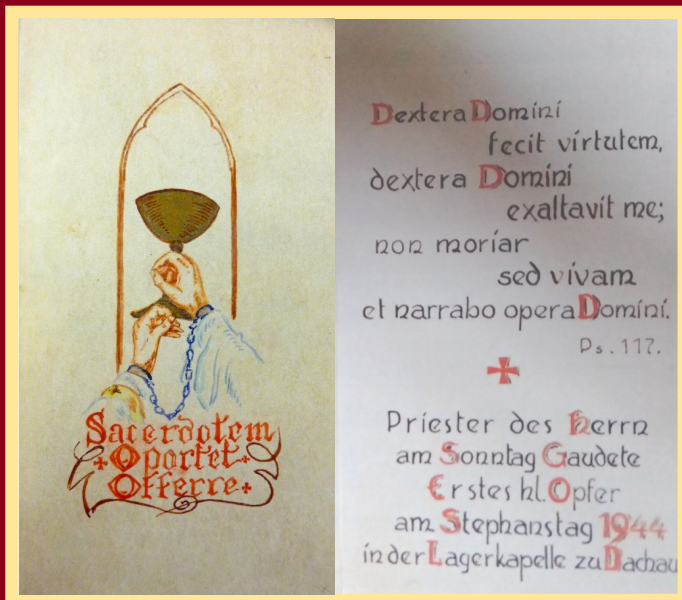 Sacerdotem
Oportet
Offerre
Dextera Domini
fecit virtutem,
dextera Domini
exaltavit me;
non moriar
sed vivam
et narrabo opera Domini.
Ps. 117.
Priester des Herrn
am Sonntag Gaudete
Erstes hl. Opfer
am Stephanstag 1944
in der Lagerkapelle zu Dachau